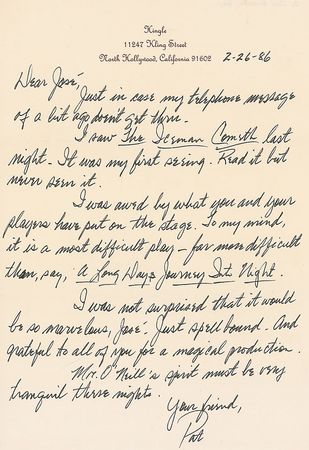 Hingle
11247 Kling Street
North Hollywood, California 91602
2-26-86
Dear José,
Just in case my telephone message
of a bit ago dont get thru.
I saw The Iceman Cometh last
night. It was my first seeing. Read it but
never seen it.
I was awed by what you and your
players have put on the stage. To my mind,
it is a most difficult play - far more difficult
than, say, A Long Days Journey Into Night.
I was not surprised that it would
be so marvelous, José. Just spell bound. And
grateful to all of you for a magical production.
Mr. O'Neill's spirit must be very
tranquil these nights.
Your friend,
Pat